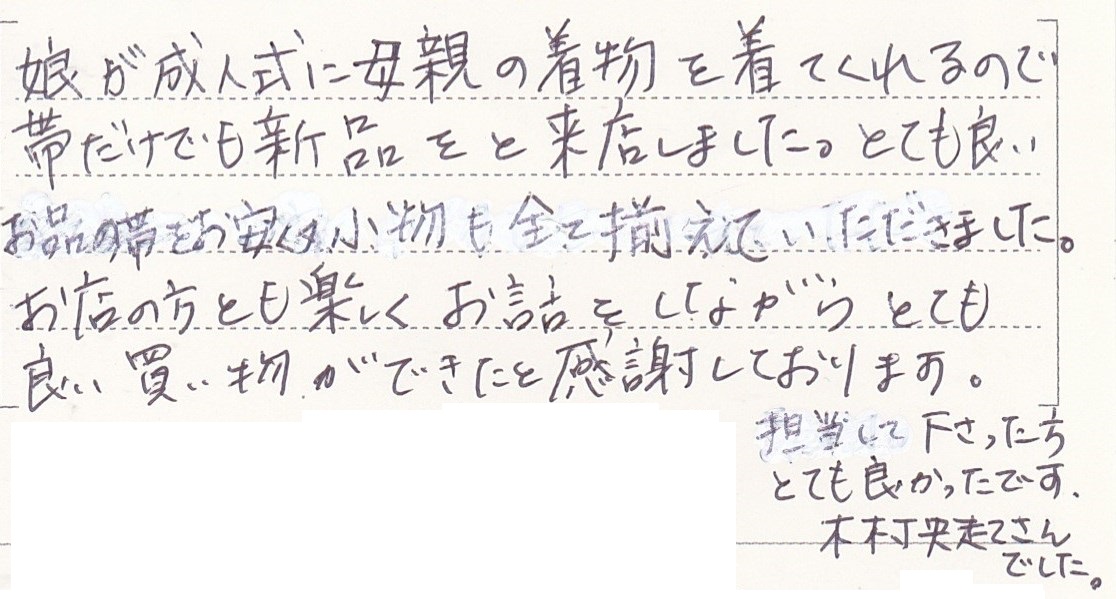 娘が成人式に母親の着物を着てくれるので
帯だけでも新品をと来店しました。とても良い
お品の帯をお安く小物も全て揃えていただきました。
お店の方とも楽しくお話をしながらとても
良い買い物ができたと感謝しております。
担当して下さった方
とても良かったです.
木村央さん
でした。